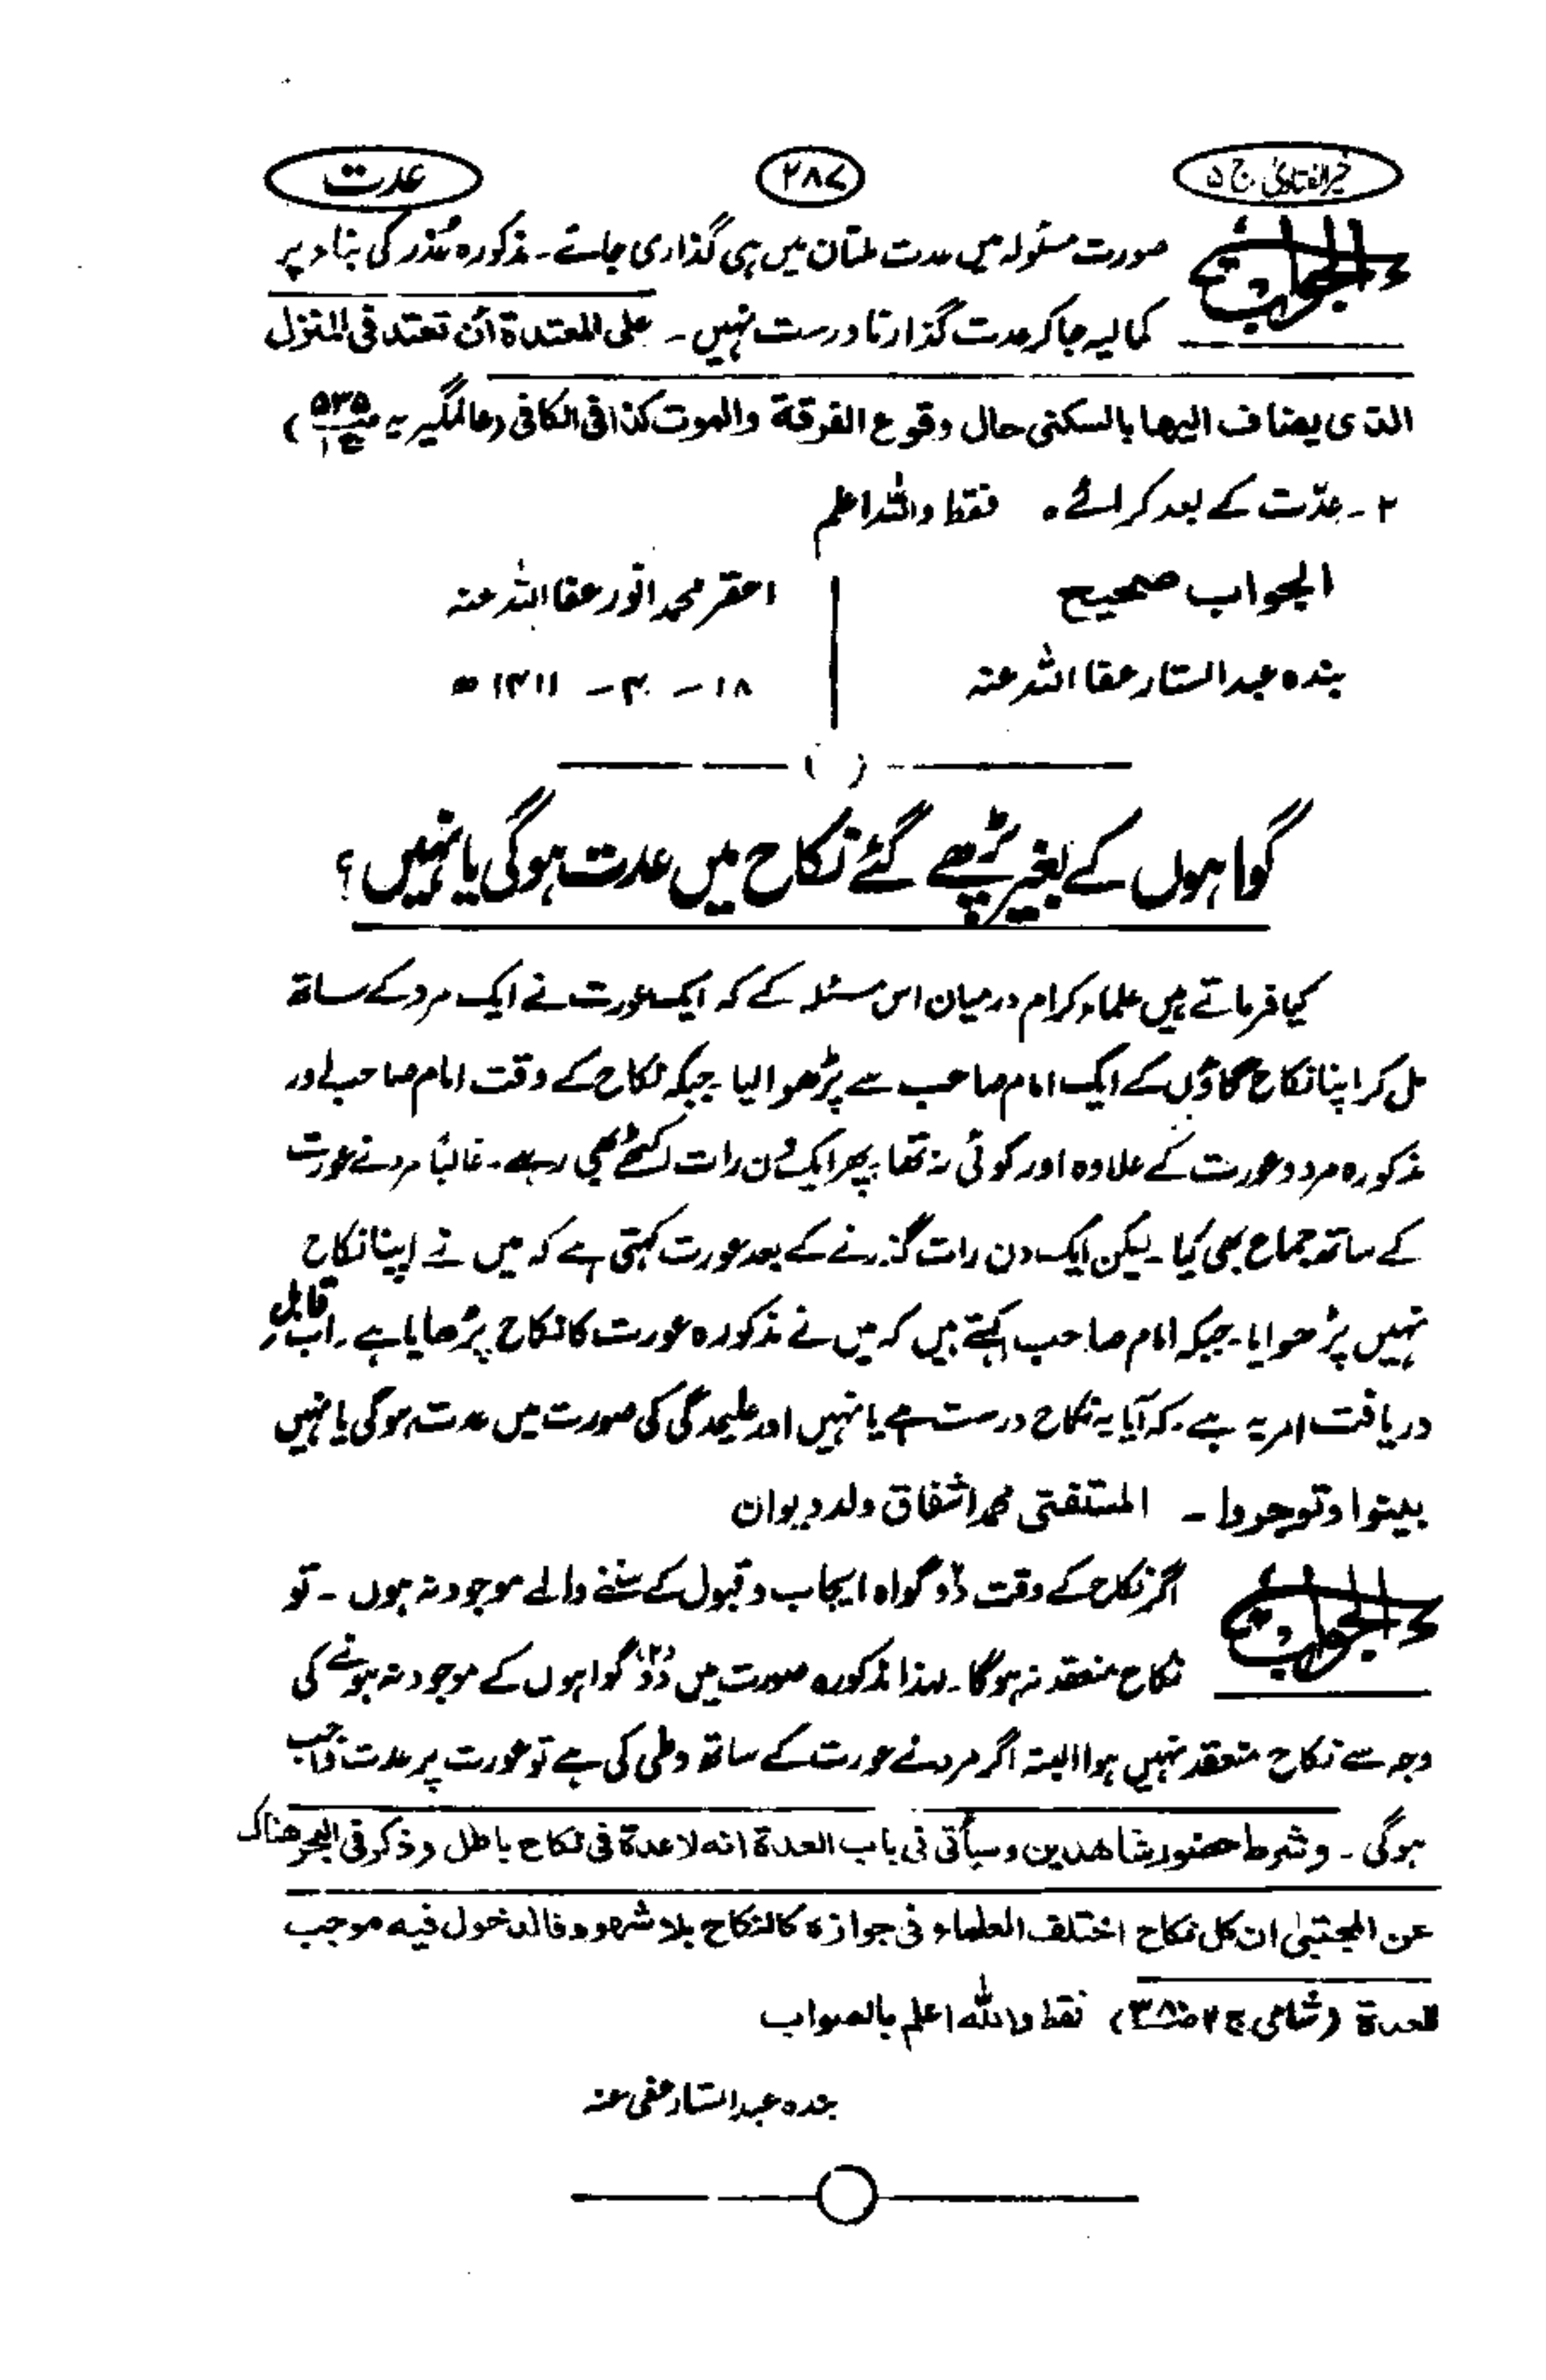 خیر الفتاویٰ ج ۵
۲۸۷
عدت
الجواب صورت مسئولہ میں عدت ملتان میں ہی گذاری جائے۔ مذکورہ عُذر کی بناء پر
کمالیہ جا کر عدت گذارنا درست نہیں۔ علی المعتدة ان تعتد فی المنزل
الذی یضاف الیھا بالسکنی حال وقوع الفرقة والموت کذا فی الکافی (عالمگیریہ ص۵۳۵ ج۱)
۲۔ عدّت کے بعد کرائے۔ فقط واللہ اعلم
الجواب صحیح
بندہ عبدالستار عفا اللہ عنہ
احقر محمد انور عفا اللہ عنہ
۱۸ — ۳ — ۱۴۱۱ ھ
گواہوں کے بغیر پڑھے گئے نکاح میں عدت ہوگی یا نہیں؟
کیا فرماتے ہیں علماء کرام درمیان اس مسئلہ کے کہ ایک عورت نے ایک مرد کے ساتھ
مل کر اپنا نکاح گاؤں کے ایک امام صاحب سے پڑھوا لیا جبکہ نکاح کے وقت امام صاحب اور
مذکورہ مرد و عورت کے علاوہ اور کوئی نہ تھا، پھر ایک دن رات اکٹھے بھی رہے۔ غالباً مرد نے عورت
کے ساتھ جماع بھی کیا۔ لیکن ایک دن رات گزرنے کے بعد عورت کہتی ہے کہ میں نے اپنا نکاح
نہیں پڑھوایا۔ جبکہ امام صاحب کہتے ہیں کہ میں نے مذکورہ عورت کا نکاح پڑھایا ہے۔ اب قابلِ
دریافت امر یہ ہے کہ آیا یہ نکاح درست ہے یا نہیں اور علیحدگی کی صورت میں عدت ہوگی یا نہیں
بینوا وتوجروا۔ المستفتی محمد اشفاق ولد دیوان
الجواب اگر نکاح کے وقت دو گواہ ایجاب و قبول کے سننے والے موجود نہ ہوں۔ تو
نکاح منعقد نہ ہوگا۔ لہذا مذکورہ صورت میں دو (۲) گواہوں کے موجود نہ ہونے کی
وجہ سے نکاح منعقد نہیں ہوا البتہ اگر مرد نے عورت کے ساتھ وطی کی ہے تو عورت پر عدت واجب
ہوگی۔ وشرط حضور شاھدین وسیأتی فی باب العدة انه لا عدة فی نکاح باطل وذکر فی البحر ھناک
عن المجتبیٰ ان کل نکاح اختلف العلماء فی جوازہ کالنکاح بلا شھود فالدخول فیه موجب
للعدة (شامی ج۲ ص۳۸۰) فقط واللہ اعلم بالصواب
بندہ عبدالستار عفی عنہ